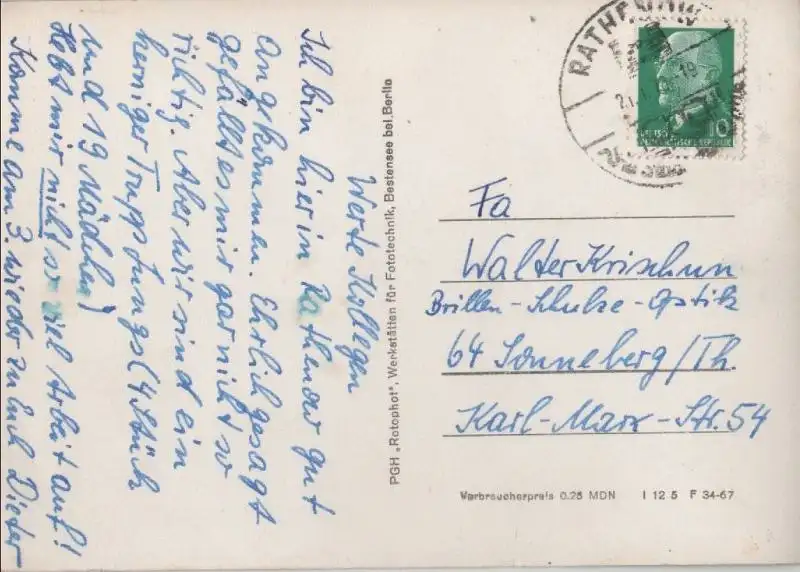 Werte Kollegen
Ich bin hier in Rathenow gut
angekommen. Ehrlich gesagt
gefällt es mir gar nicht so
richtig. Aber wir sind ein
Trupp Jungs (4 Stück
und 19 Mädchen)
Hebt mir nicht so viel Arbeit auf!
Komme am 3. wieder zu Euch Dieter
PGH „Rotophot", Werkstätten für Fototechnik, Bestensee bei Berlin
RATHENOW
10
Fa
Walter Krischun
Brillen-Schulze-Optik
64 Sonneberg/Th.
Karl-Marx-Str. 54
Verbraucherpreis 0.25 MDN I 12 5 F 34-67